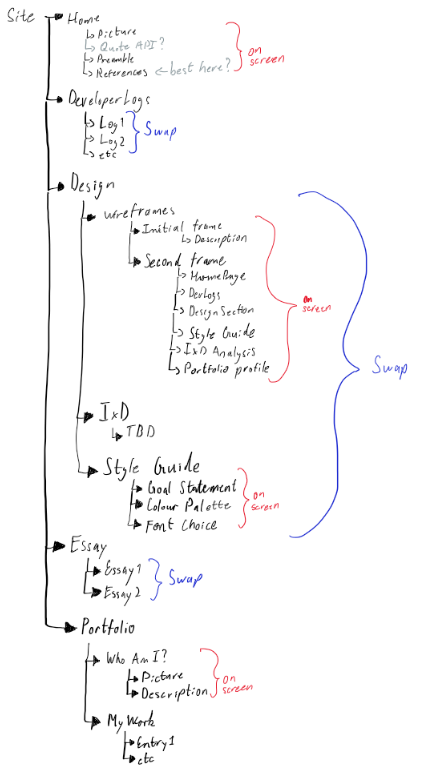 Site
Home
Picture
Quote API?
Preamble
References ← best here?
on
screen
DeveloperLogs
Log1
Log2
etc
Swap
Design
wireframes
Initial frame
Description
Second frame
HomePage
DevLogs
Design Section
Style Guide
IxD Analysis
Portfolio profile
on
screen
Swap
IxD
TBD
Style Guide
Goal Statement
Colour Palette
Font Choice
on
screen
Essay
Essay1
Essay2
Swap
Portfolio
Who Am I?
Picture
Description
on
screen
My Work
Entry1
etc